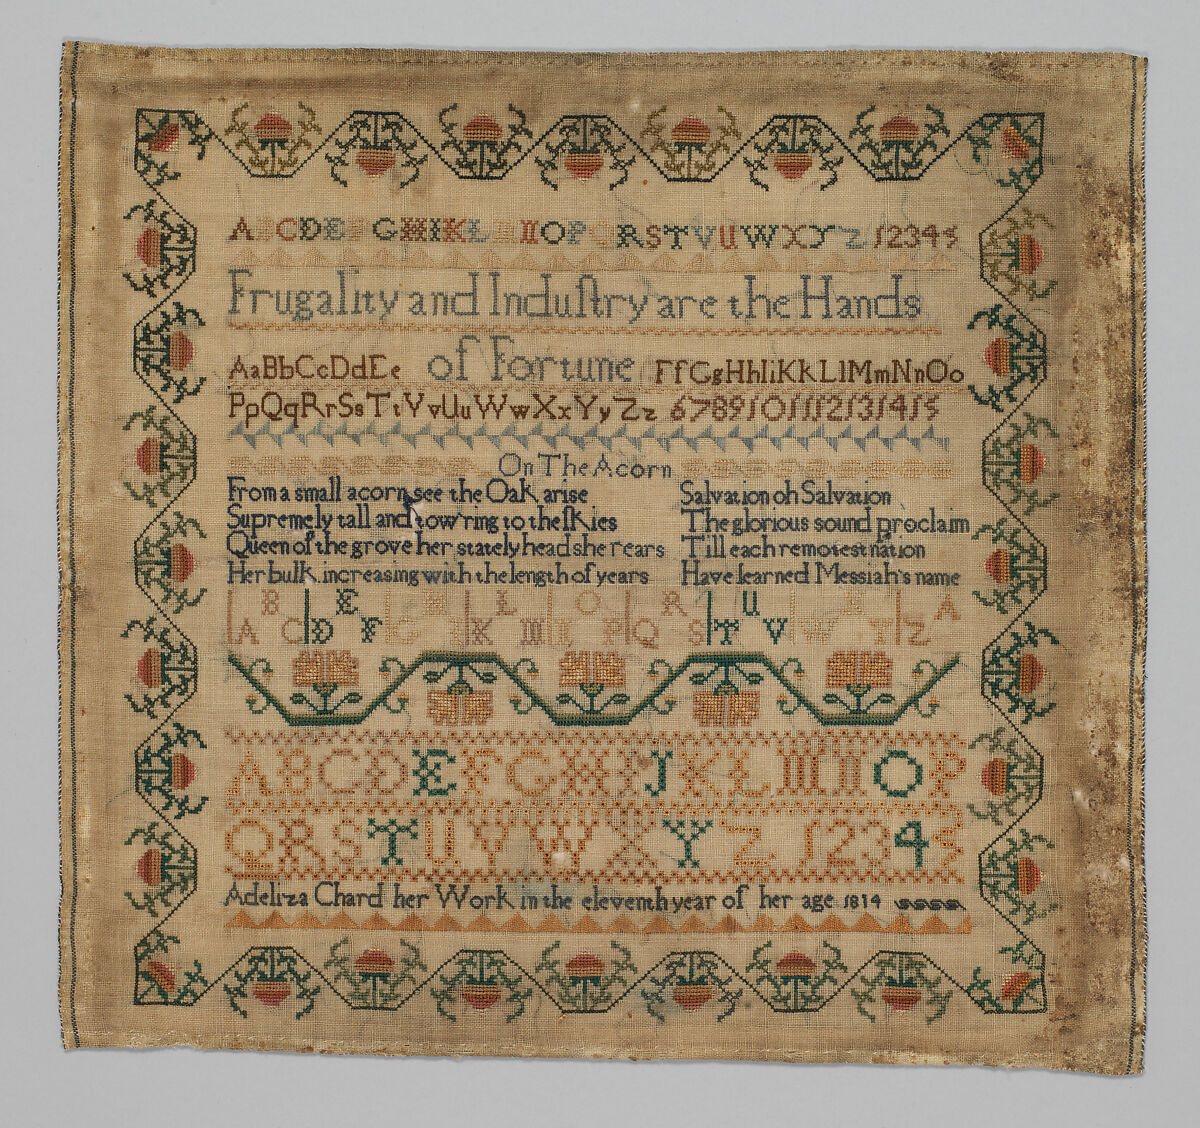 A B C D E F G H I K L M N O P Q R S T V U W X Y Z 1 2 3 4 5
Frugality and Induſtry are the Hands
of Fortune
AaBbCcDdEe FfGgHhIiKkLlMmNnOo
PpQqRrSsTtVvUuWwXxYyZz 6 7 8 9 10 11 12 13 14 15
On The Acorn
From a small acorn see the Oak arise
Supremely tall and tow'ring to the ſkies
Queen of the grove her stately head she rears
Her bulk increasing with the length of years
Salvation oh Salvation
The glorious sound proclaim
Till each remotest nation
Have learned Messiah's name
A B C D E F G H I K L M N O P Q R S T U V W X Y Z A
A B C D E F G H I J K L M N O P
Q R S T U V W X Y Z 1 2 3 4 5
Adeliza Chard her Work in the eleventh year of her age 1814